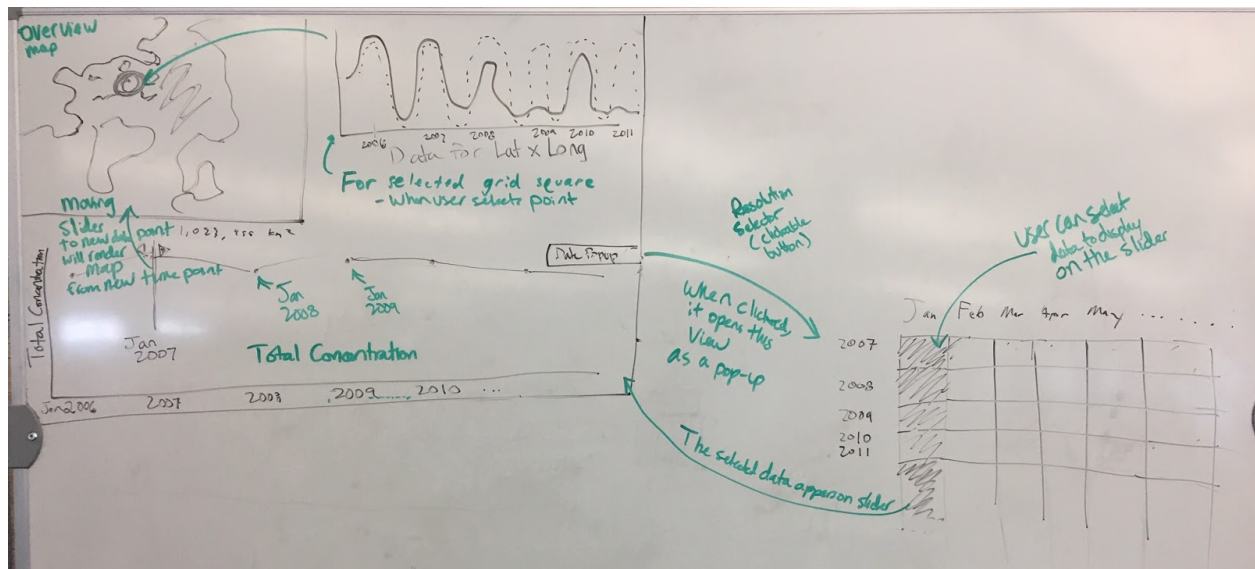 Overview
map
2006 2007 2008 2009 2010 2011
Data for Lat x Long
For selected grid square
- when user selects point
moving
slider
to new data point
will render
map
from new time point
km²
Total Concentration
Jan
2007
Jan
2008
Jan
2009
Total Concentration
Jan 2006 2007 2008 2009 ...... 2010 ...
Resolution
Selector
(clickable
button)
When clicked,
it opens this
View
as a pop-up
The selected data appear on slider
User can select
data to display
on the slider
Jan Feb Mar Apr May .... . . .
2007
2008
2009
2010
2011